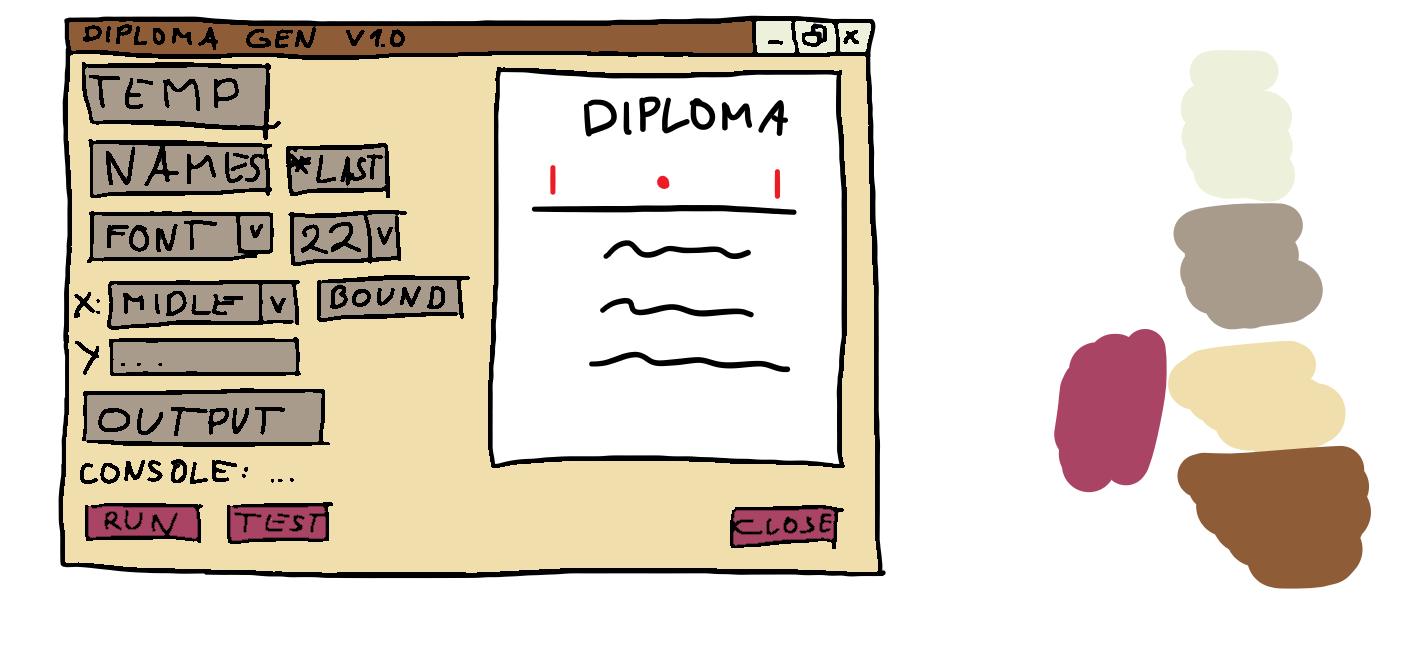 DIPLOMA GEN V1.0 - X
TEMP
NAMES *LAST
FONT V 22 V
X: MIDLE V BOUND
Y ...
OUTPUT
CONSOLE: ...
RUN TEST CLOSE
DIPLOMA